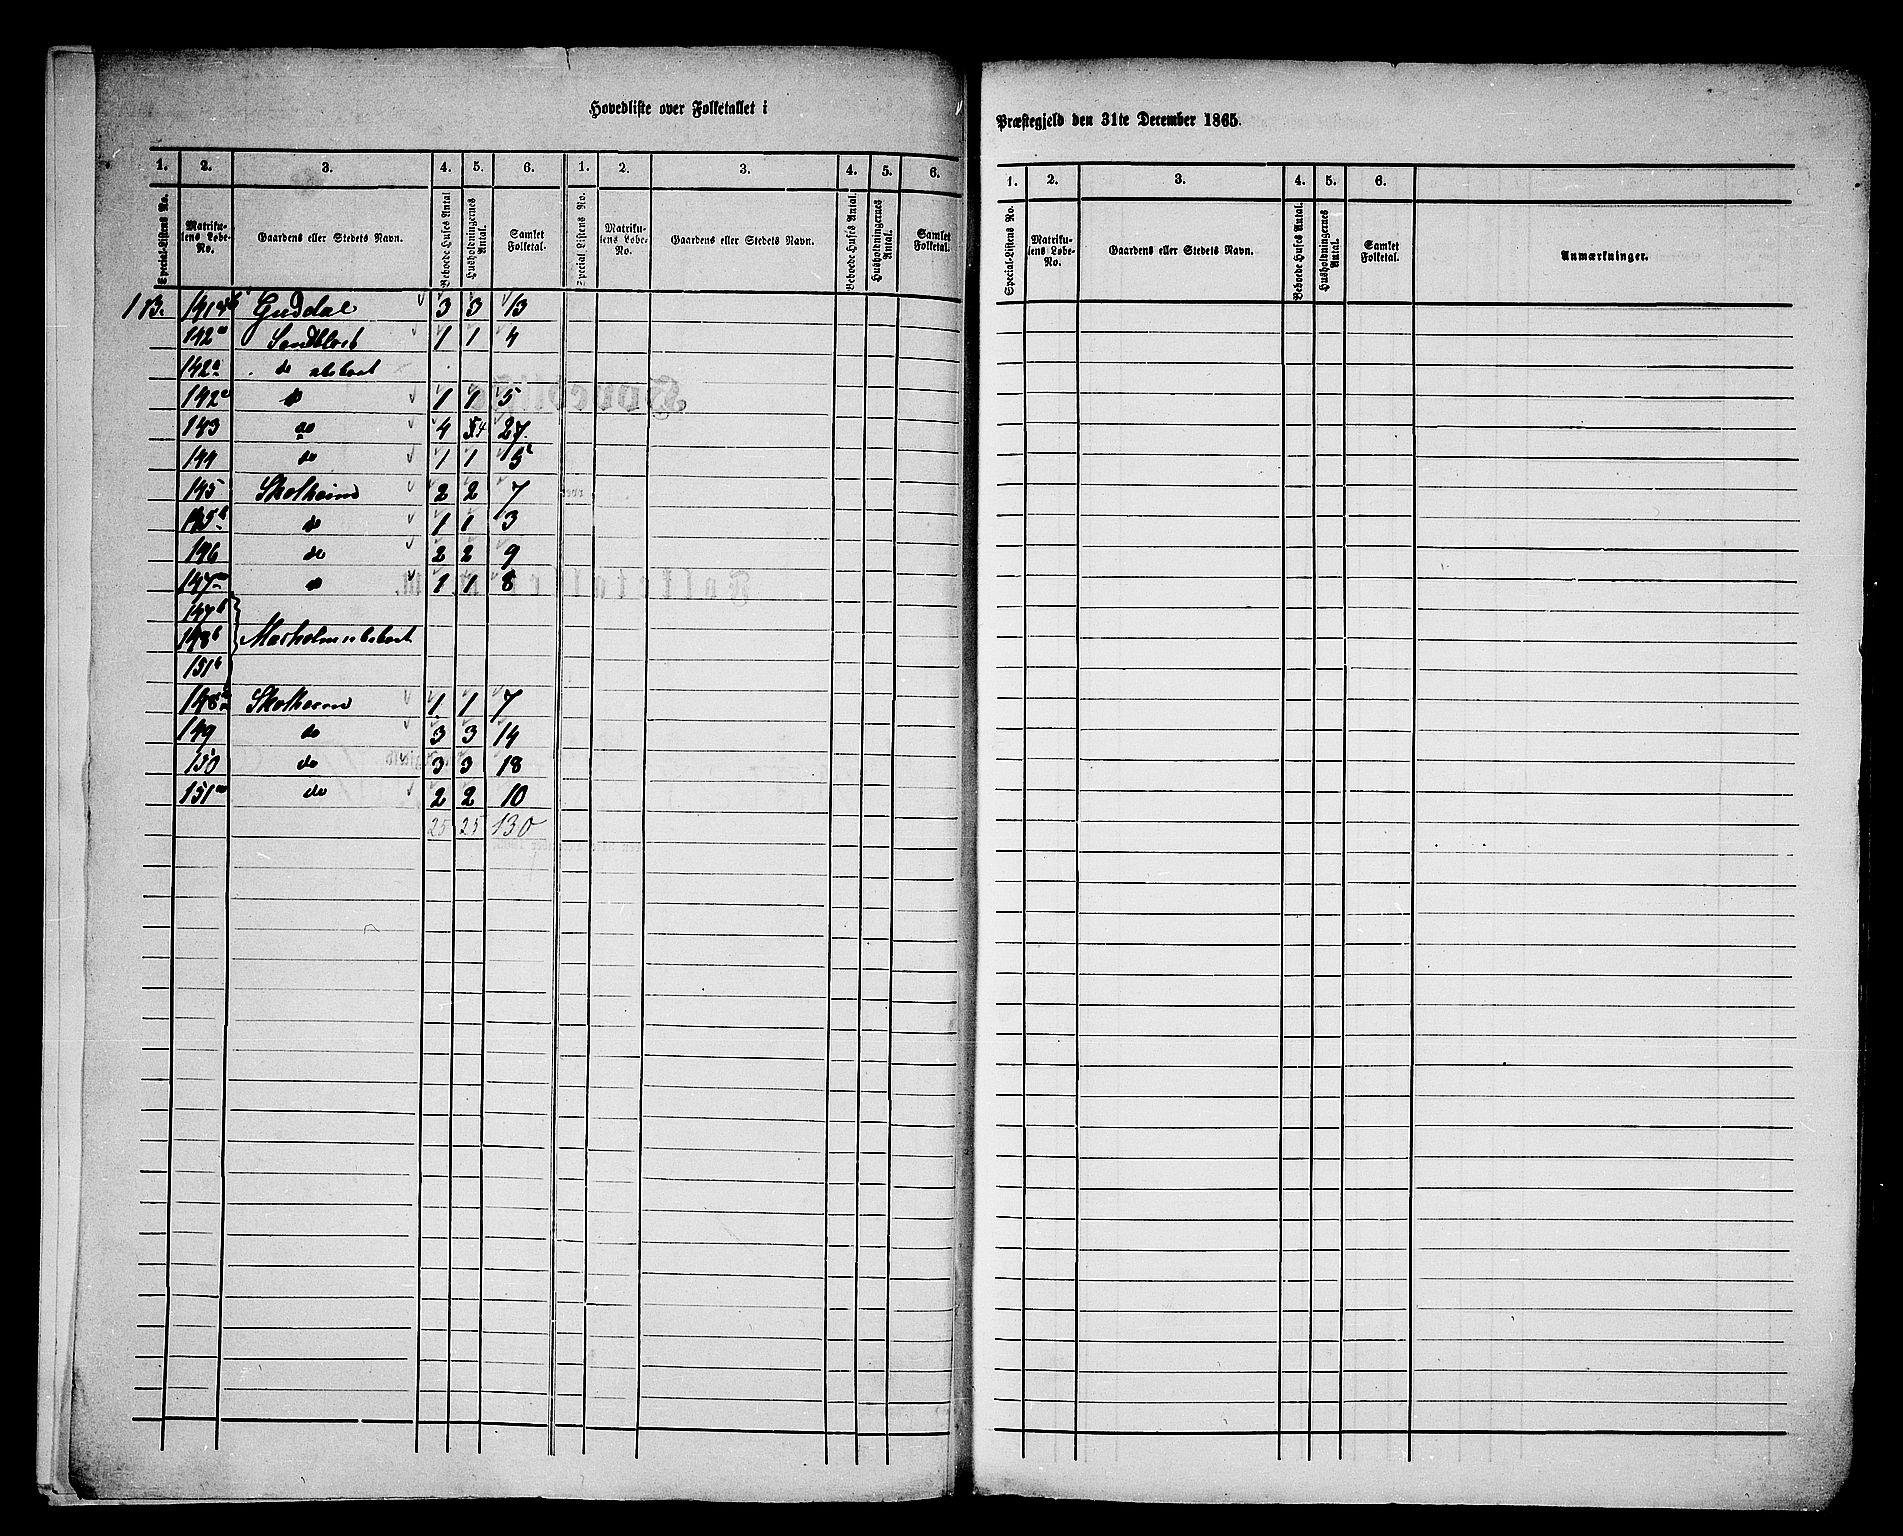 Hovedliste over Folketallet i
Præstegjeld den 31te December 1865.
1. 2. 3. 4. 5. 6. 1. 2. 3. 4. 5. 6.
Special-Listens No. Matrikulens Løbe-No. Gaardens eller Stedets Navn. Beboede Huses Antal. Husholdningernes Antal. Samlet Folketal. Special-Listens No. Matrikulens Løbe-No. Gaardens eller Stedets Navn. Beboede Huses Antal. Husholdningernes Antal. Samlet Folketal.
1. 2. 3. 4. 5. 6.
Special-Listens No. Matrikulens Løbe-No. Gaardens eller Stedets Navn. Beboede Huses Antal. Husholdningernes Antal. Samlet Folketal. Anmærkninger.
141 Guddal 3 3 13
142 1 1 4
142a do
142c do 1 1 5
143 do 4 4 27.
144 do 1 1 5
145 Skolheim 2 2 7
145b do 1 1 3
146 do 2 2 9
147a do 1 1 8
147b
148b
151b
148a Skolheim 1 1 7
149 do 3 3 14
150 do 3 3 18
151a do 2 2 10
25 25 130